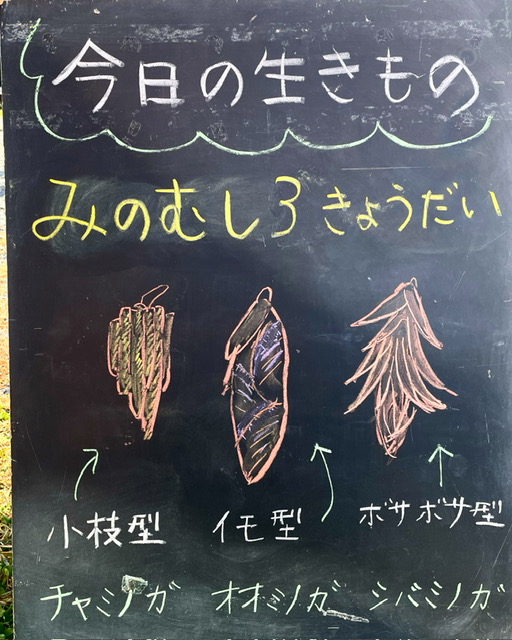 今日の生きもの
みのむし3きょうだい
小枝型 イモ型 ボサボサ型
チャミノガ オオミノガ シバミノガ